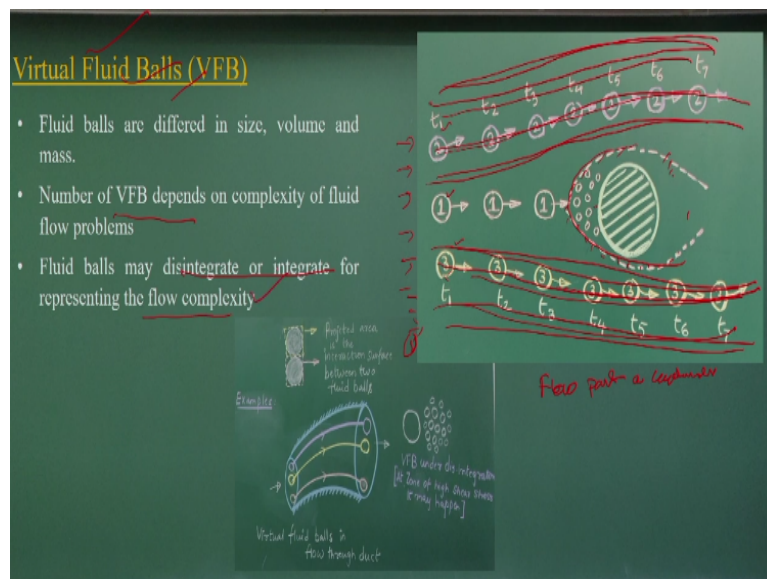 Virtual Fluid Balls (VFB)
• Fluid balls are differed in size, volume and
mass.
• Number of VFB depends on complexity of fluid
flow problems
• Fluid balls may disintegrate or integrate for
representing the flow complexity
t1 t2 t3 t4 t5 t6 t7
2 2 2 2 2 2 2
1 1 1
3 3 3 3 3 3 3
t1 t2 t3 t4 t5 t6 t7
Flow past a
area
is the
interaction surface
between two
fluid balls
Examples:
VFB under disintegration
[At Zone of high shear stress
it may happen]
Virtual fluid balls in
flow through duct